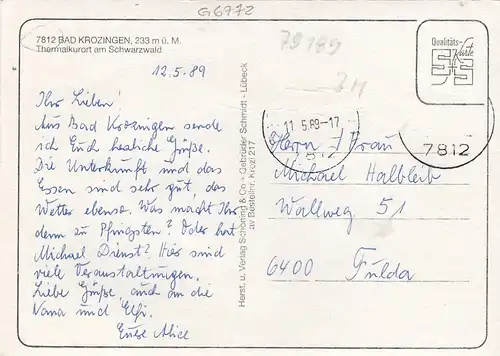 G6972
7812 BAD KROZINGEN, 233 m ü. M.
Thermalkurort am Schwarzwald
79189
Qualitäts-
Karte
12.5.89
Ihr Lieben!
Aus Bad Krozingen sende
ich Euch herzliche Grüße.
Die Unterkunft und das
Essen sind sehr gut, das
Wetter ebenso. Was macht Ihr
denn zu Pfingsten? Oder hat
Michael Dienst? Hier sind
viele Veranstaltungen.
Liebe Grüße, auch an die
Nana und Elfi.
Eure Alice
Herst. u. Verlag Schöning & Co + Gebrüder Schmidt - Lübeck
av Bestellnr. Krozi 217
11.5.89-17
7812
7812
Herrn / Frau
Michael Halbleib
Wallweg 51
6400 Fulda